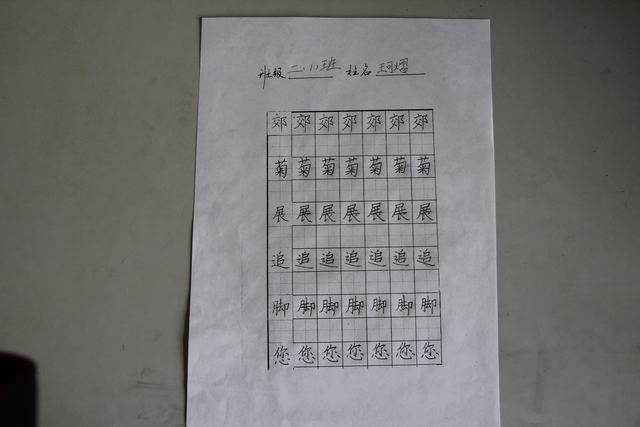 班级 二、1)班 姓名 王珂熠
郊 郊 郊 郊 郊 郊 郊
菊 菊 菊 菊 菊 菊 菊
展 展 展 展 展 展 展
追 追 追 追 追 追 追
脚 脚 脚 脚 脚 脚 脚
您 您 您 您 您 您 您